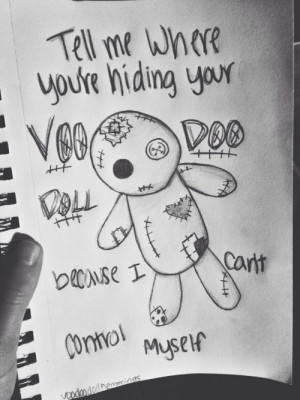 Tell me Where
you're hiding your
VOO DOO
DOLL
because I can't
control myself